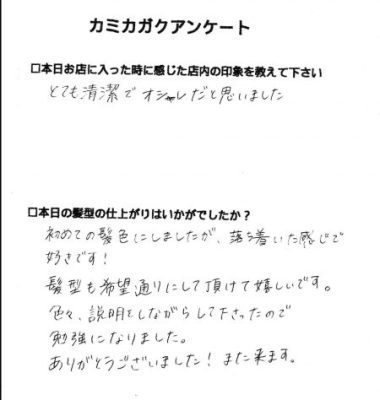 カミカガクアンケート
□本日お店に入った時に感じた店内の印象を教えて下さい
とても清潔でオシャレだと思いました
□本日の髪型の仕上がりはいかがでしたか？
初めての髪色にしましたが、落ち着いた感じで
好きです！
髪型も希望通りにして頂けて嬉しいです。
色々、説明をしながらして下さったので
勉強になりました。
ありがとうございました！また来ます。